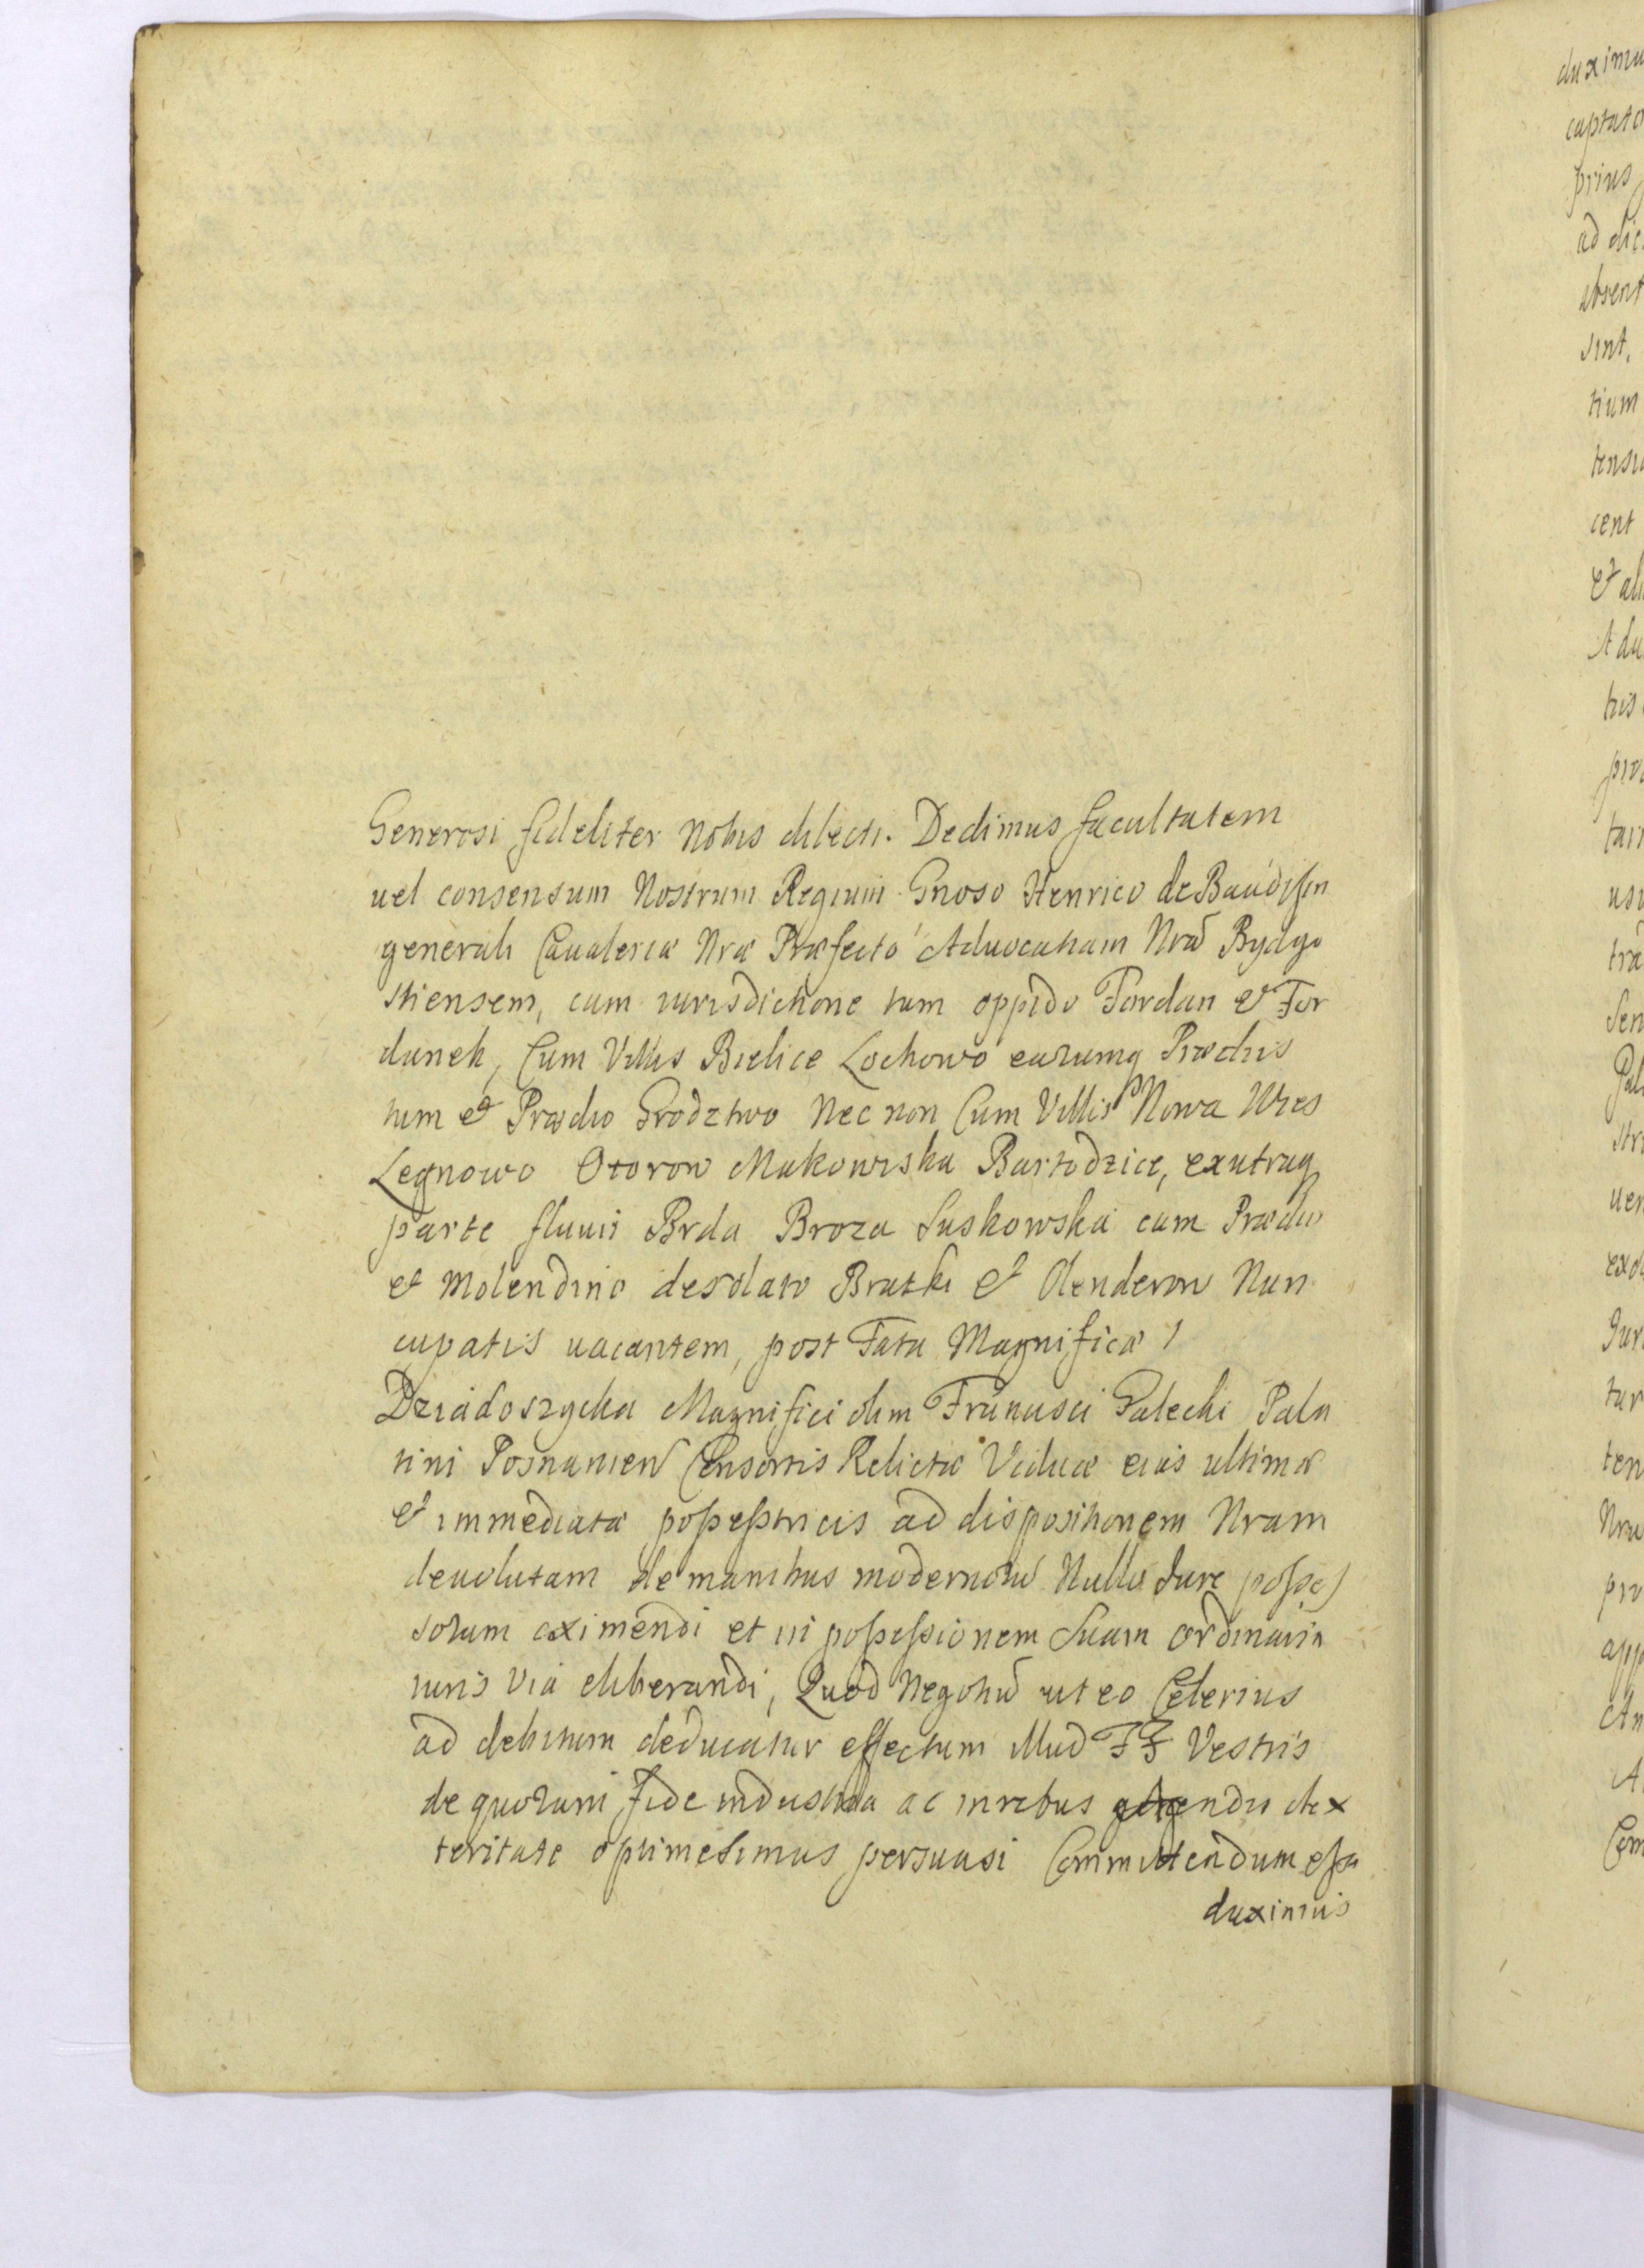 Generosi fideliter Nobis dilecti. Dedimus facultatem
uel consensum Nostrum Regium Gnoso Henrico de Baudissin
generali Caualeriæ Nræ Præfecto Aduocatiam Nrā Bydgo
stiensem, cum iurisdictione tum oppido Fordan et For
danek, Cum Villis Bielice Lochowo earumq Prædiis
tum et Prædio Grodztwo Nec non Cum Villis Nowa Wies
Legnowo Otorow Makowiska Bartodzice, exutraq
parte fluuii Brda Broza Suskowska cum Prædio
et Molendino desolato Bratki et Olenderow Nun
cupatis uacantem, post Fata Magnificæ
Dziadoszycka Magnifici olim Franusci Galecki Pala
tini Posnanien Consortis Relictæ Viduæ eius ultimæ
et immediatæ possesstricis ad dispositionem Nram
deuolutam de manibus modernorū Nullo Jure posses
sorum eximendi et in possessionem Suam ordinaria
iuris via eliberandi, Quod Negotiū ut eo Celerius
ad debitum deducatur effectum illud FF Vestris
de quorum fide industria ac in rebus agendis dex
teritate optime simus persuasi Committendum esse
duximus
duximu
captato
prius
ad dic
absent
sint,
tium
tensi
cent
et ali
Adu
tris
pro
tair
usu
trā
Sen
Pal
str
uer
exd
Jur
tur
ten
Nra
pro
app
An
A
Com